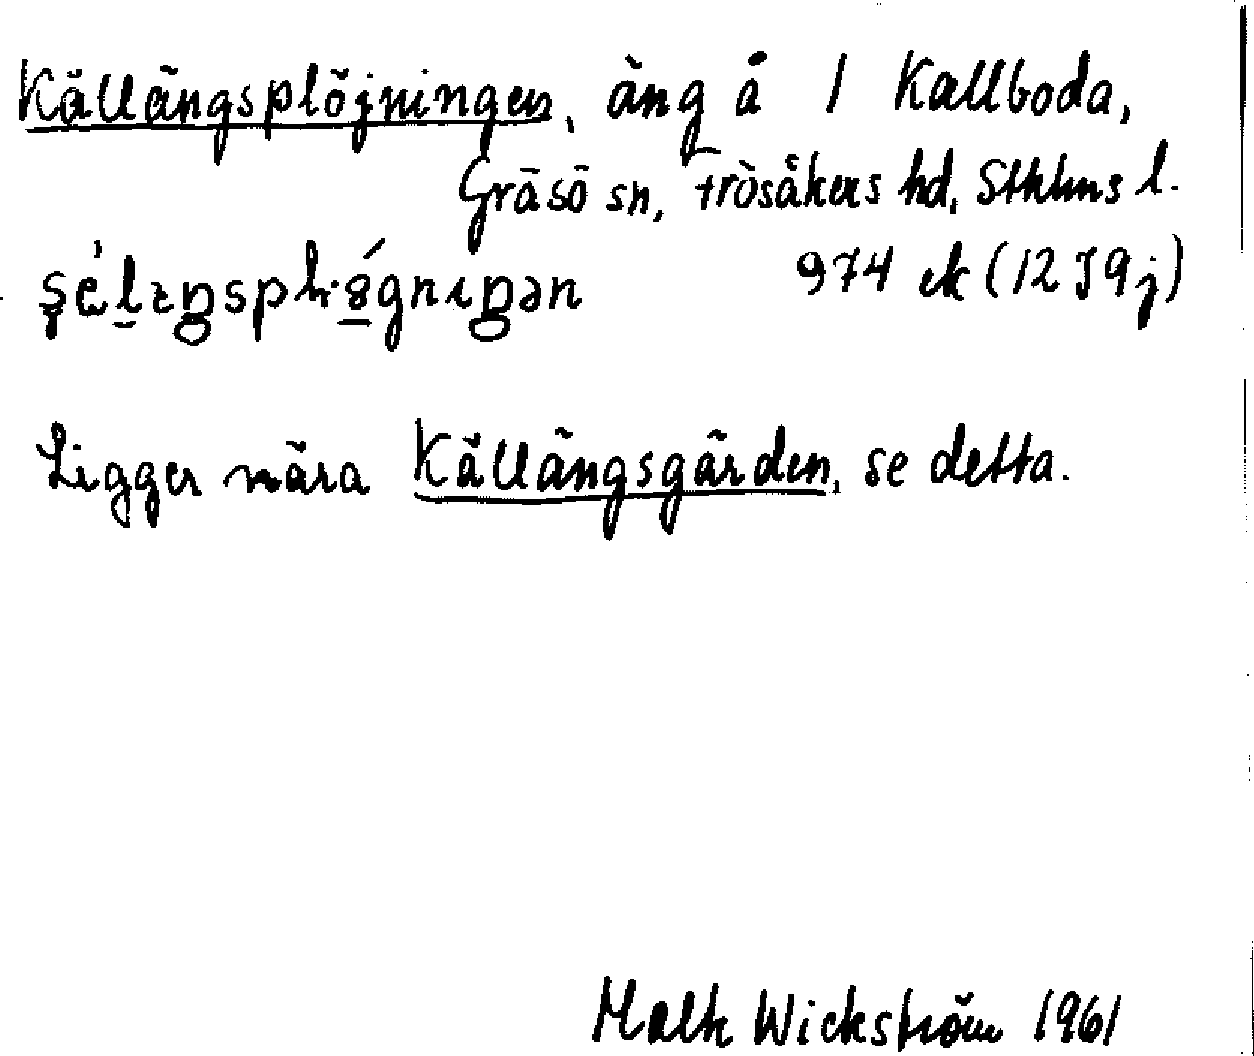 Källängsplöjningen, äng å 1 Kallboda,
Gräsö sn, Frösåkers hd, Sthlms l.
974 ek (12 I 9 j)
Ligger nära Källängsgärden, se detta.
Wickström 1961